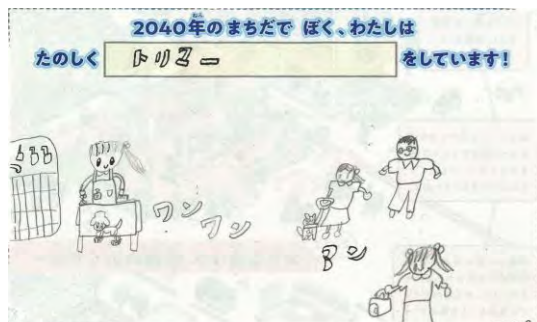 2040年のまちだで ぼく、わたしは
たのしく トリマー をしています!
ワン
ワン